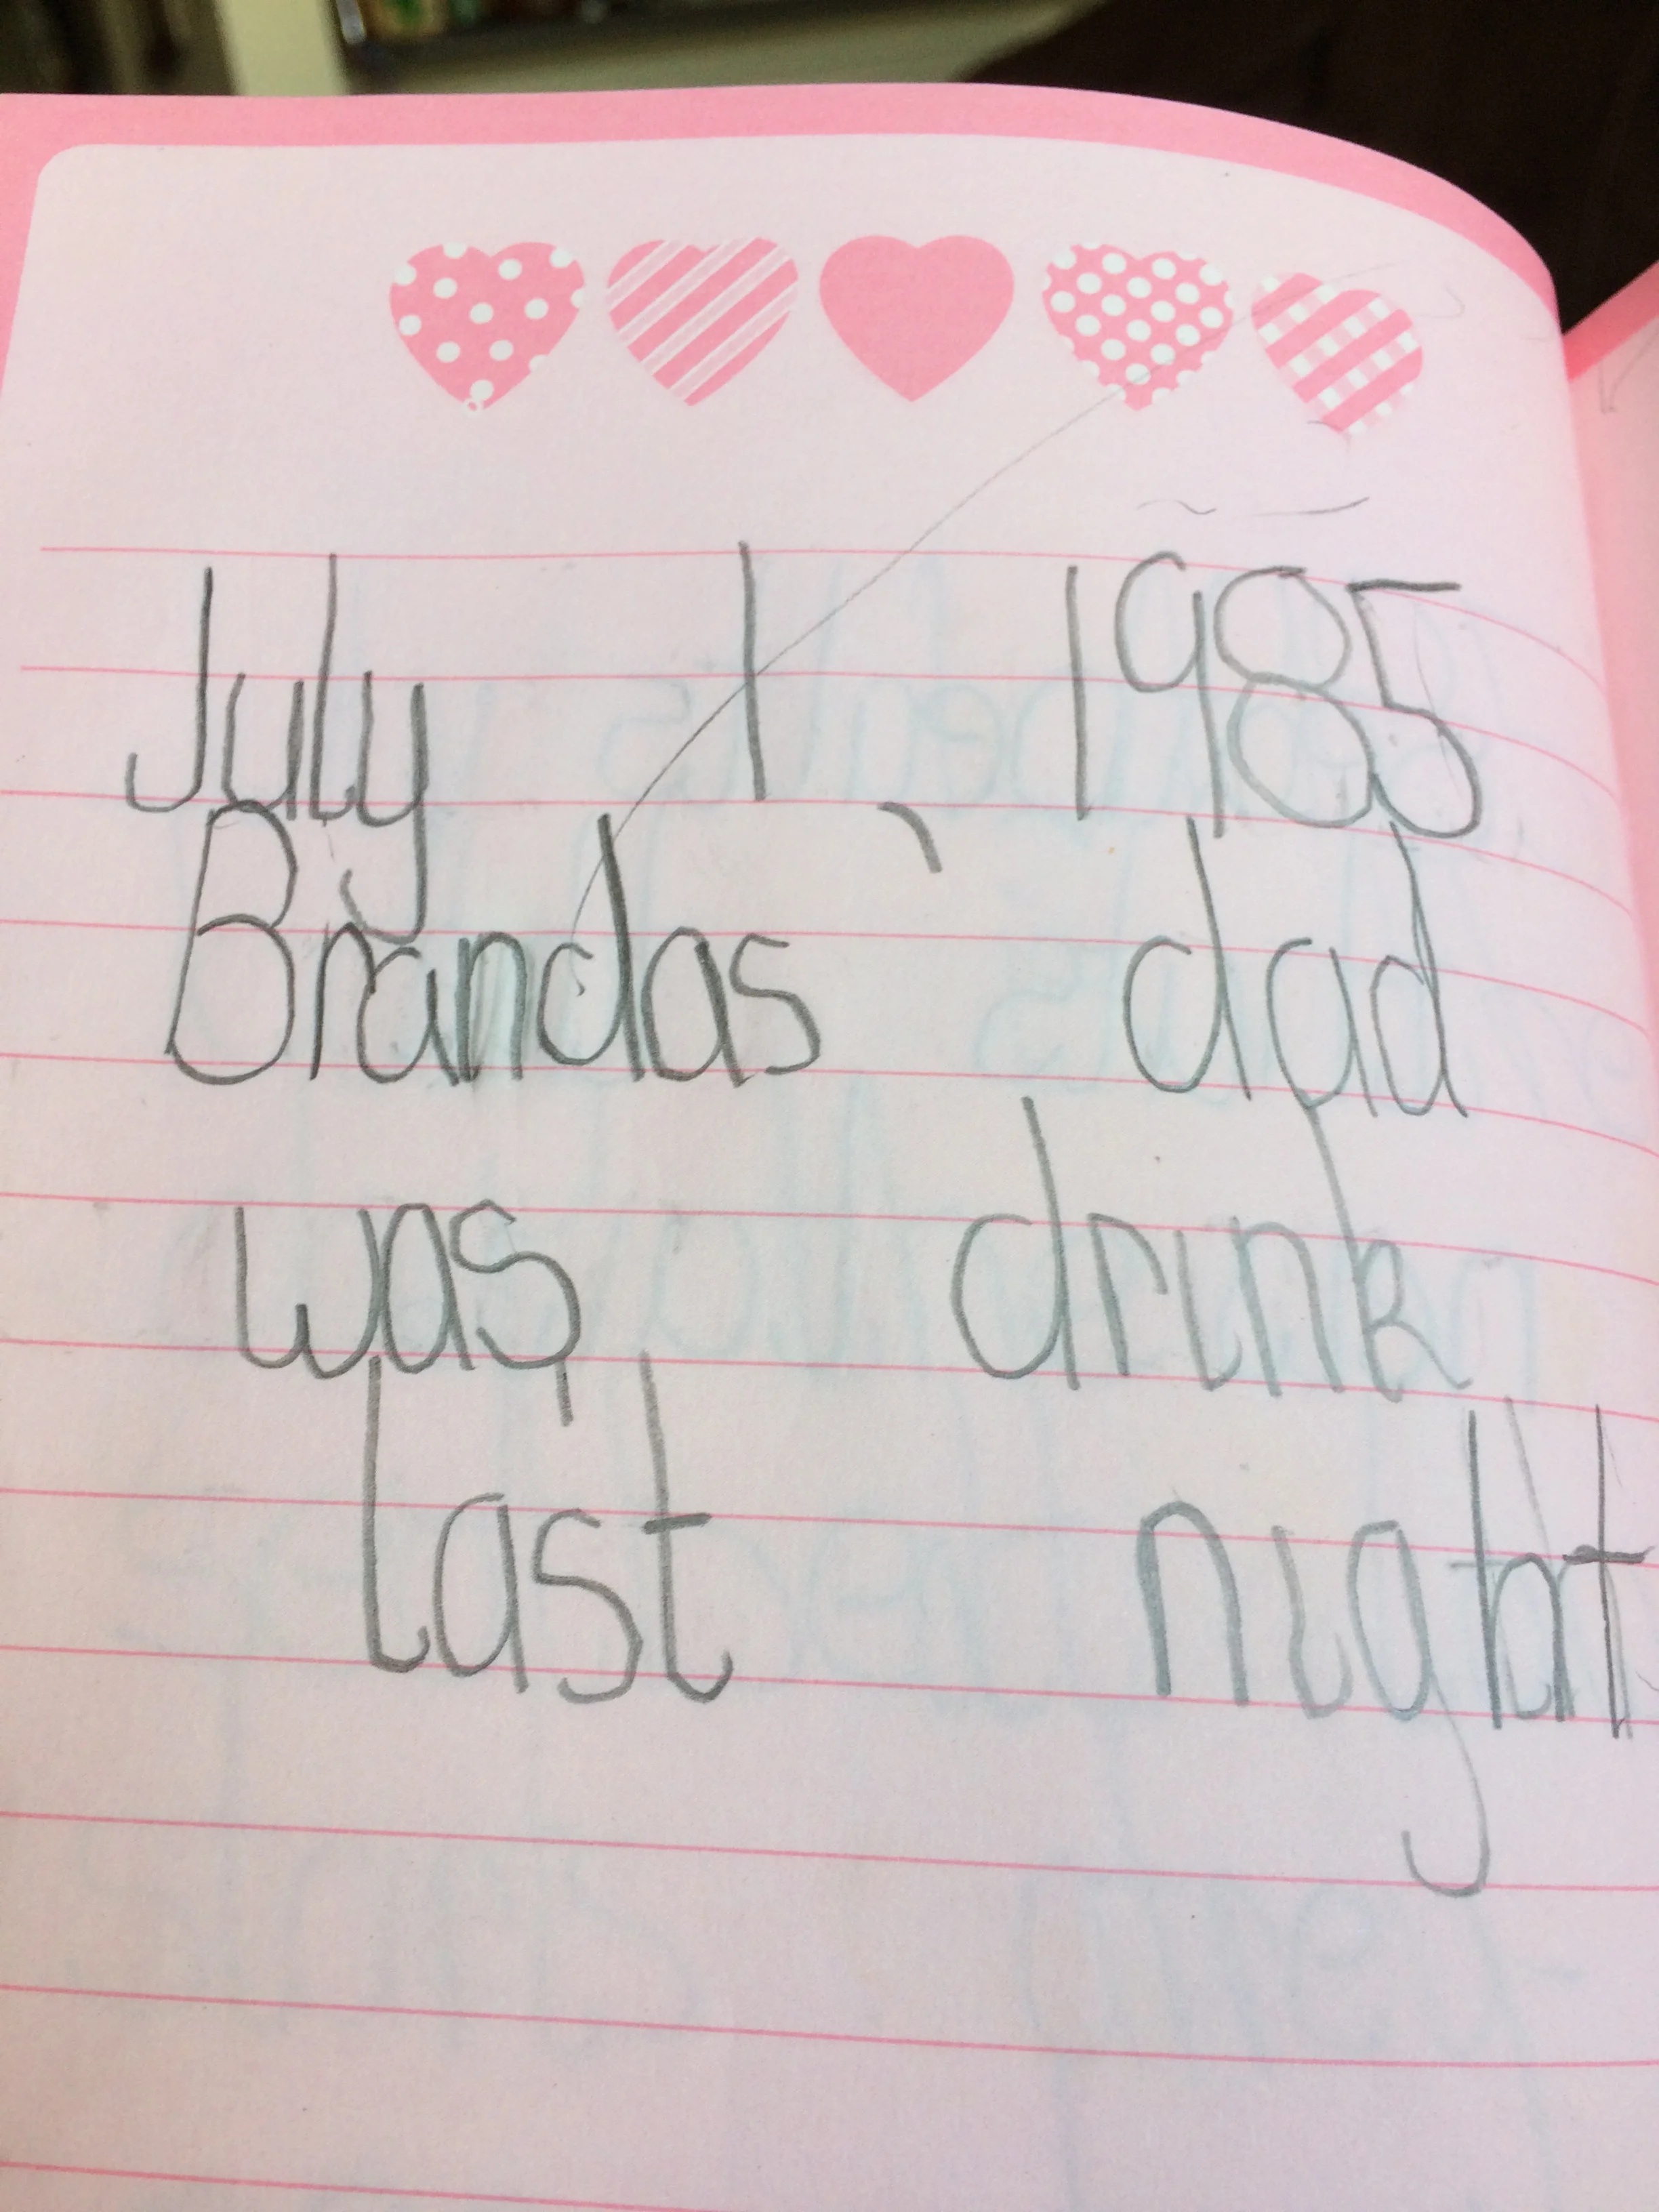 July 1, 1985
Brandas dad
was drink
last night